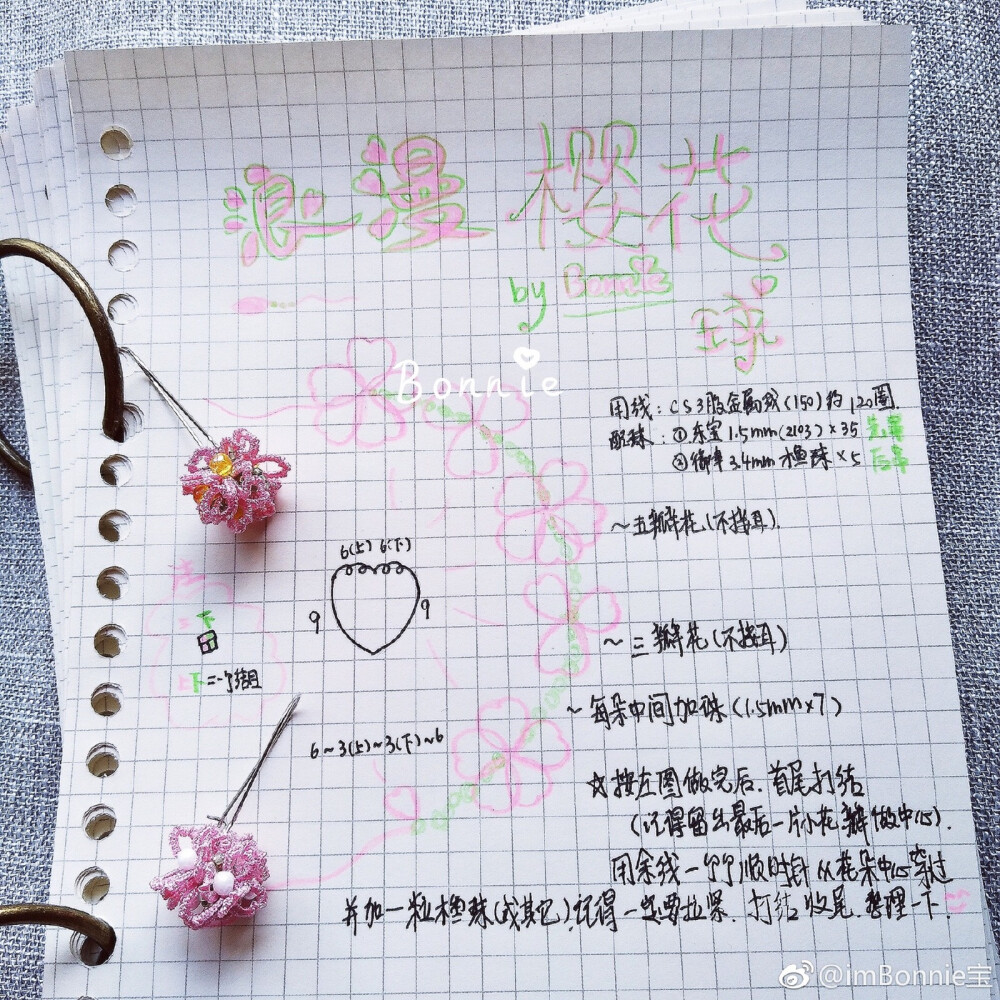 浪漫樱花
by Bonnie
球
Bonnie
用线：CS3股金属线(150)约120圈
配珠：①东宝1.5mm(2103)×35 先穿
②御幸3.4mm水滴珠×5 后穿
~五瓣花(不接耳).
6(上) 6(下)
9 9
~三瓣花(不接耳)
上
下
上下=一个结组
~每朵中间加珠(1.5mm×7)
6~3(上)~3(下)~6
☆按左图做完后.首尾打结
(记得留出最后一片小花瓣做中心).
用余线一个个顺时针从花朵中心穿过
并加一粒 珠(或其它).记得一定要拉紧.打结收尾.整理一下.
@imBonnie宝